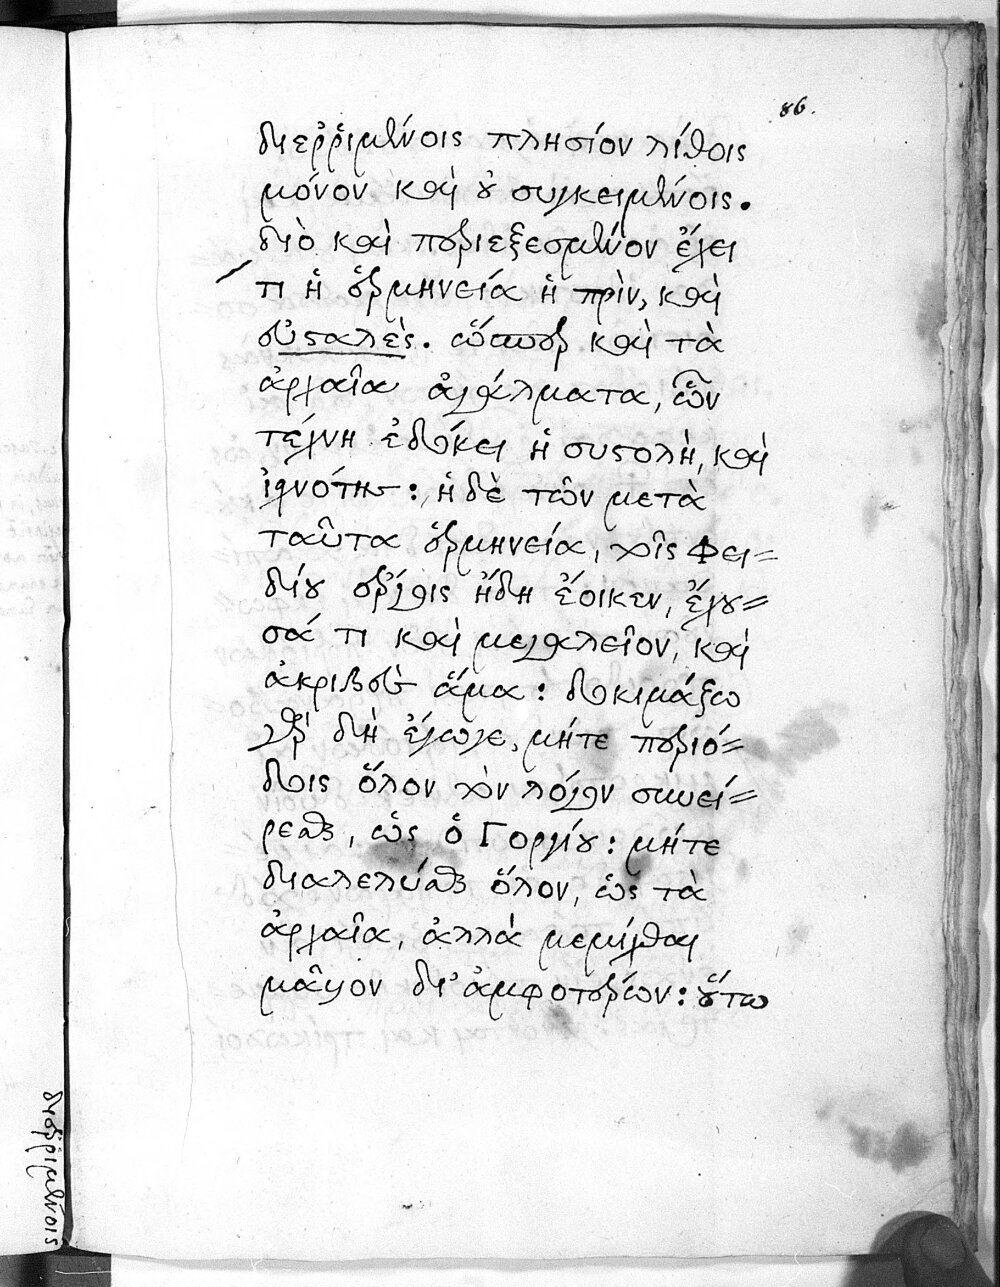 86.
διεῤῥιμένοις πλησίον λίθοις
μόνον καὶ οὐ συγκειμένοις.
διὸ καὶ περιεξεσμένον ἔχει
τι ἡ ἑρμηνεία ἡ πρὶν, καὶ
εὐσταλές. ὥσπερ καὶ τὰ
ἀρχαῖα ἀγάλματα, ὧν
τέχνη ἐδόκει ἡ συστολὴ, καὶ
ἰσχνότης: ἡ δὲ τῶν μετὰ
ταῦτα ἑρμηνεία, τοῖς Φει=
δίου ἔργοις ἤδη ἔοικεν, ἔχου=
σά τι καὶ μεγαλεῖον, καὶ
ἀκριβὲς ἅμα: δοκιμάζω
γὰρ δὴ ἔγωγε, μήτε περιό=
δοις ὅλον τὸν λόγον συνεί=
ρεσθαι, ὡς ὁ Γοργίου: μήτε
διαλελύσθαι ὅλον, ὡς τὰ
ἀρχαῖα, ἀλλὰ μεμίχθαι
μᾶλλον δι' ἀμφοτέρων: οὕτω
διεῤῥιμένοις